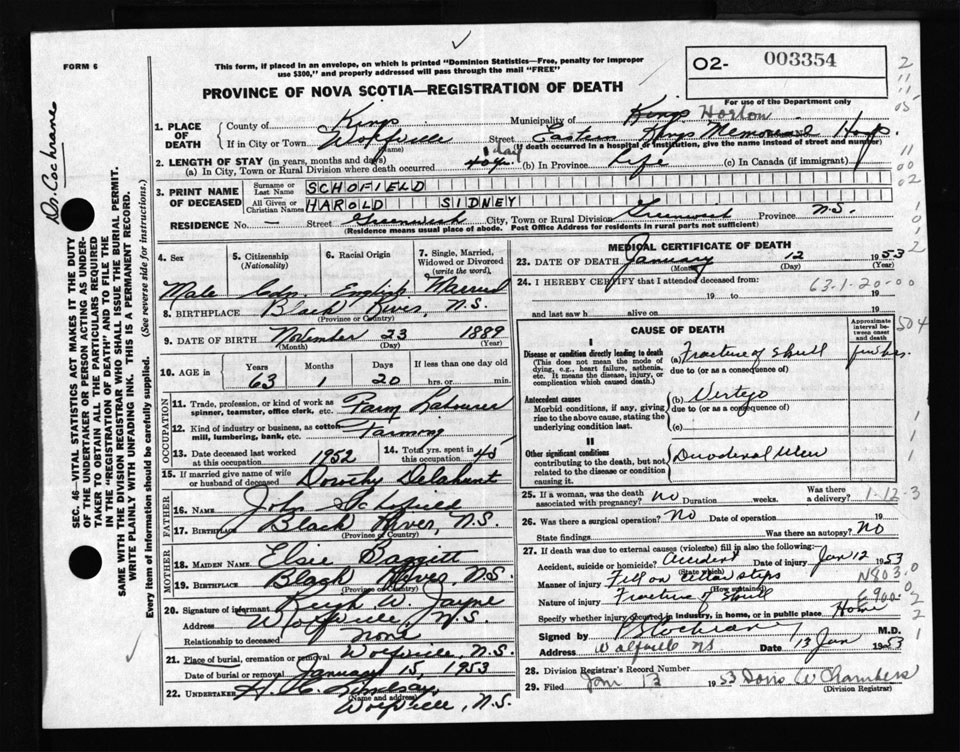 FORM 6
This form, if placed in an envelope, on which is printed "Dominion Statistics—Free, penalty for improper
use $300," and properly addressed will pass through the mail "FREE"
O2- 003354
PROVINCE OF NOVA SCOTIA—REGISTRATION OF DEATH
For use of the Department only
Dr. Cochrane
SEC. 46—VITAL STATISTICS ACT MAKES IT THE DUTY
OF THE UNDERTAKER OR PERSON ACTING AS UNDER-
TAKER TO OBTAIN ALL THE PARTICULARS REQUIRED
IN THE "REGISTRATION OF DEATH" AND TO FILE THE
SAME WITH THE DIVISION REGISTRAR WHO SHALL ISSUE THE BURIAL PERMIT.
WRITE PLAINLY WITH UNFADING INK. THIS IS A PERMANENT RECORD.
Every item of information should be carefully supplied. (See reverse side for instructions.)
1. PLACE OF DEATH County of Kings Municipality of Kings Horton
If in City or Town Wolfville Street Eastern Kings Memorial Hosp.
(Name) (If death occurred in a hospital or institution, give the name instead of street and number)
2. LENGTH OF STAY (in years, months and days)
(a) In City, Town or Rural Division where death occurred 1 day (b) In Province Life (c) In Canada (if immigrant)
3. PRINT NAME OF DECEASED Surname or Last Name SCHOFIELD
All Given or Christian Names HAROLD SIDNEY
RESIDENCE No. — Street Greenwich City, Town or Rural Division Greenwich Province N.S.
(Residence means usual place of abode. Post Office Address for residents in rural parts not sufficient)
4. Sex 5. Citizenship (Nationality) 6. Racial Origin 7. Single, Married, Widowed or Divorced (write the word)
Male Cdn. English Married
8. BIRTHPLACE Black River, N.S.
(Province or Country)
9. DATE OF BIRTH November 23 1889
(Month) (Day) (Year)
10. AGE in Years Months Days If less than one day
63 1 20 hrs. or min.
OCCUPATION
11. Trade, profession, or kind of work as spinner, teamster, office clerk, etc. Farm Labourer
12. Kind of industry or business, as cotton mill, lumbering, bank, etc. Farming
13. Date deceased last worked at this occupation 1952 14. Total yrs. spent in this occupation 45
15. If married give name of wife or husband of deceased Dorothy Delahunt
FATHER
16. Name John Schofield
17. Birthplace Black River, N.S.
(Province or Country)
MOTHER
18. MAIDEN NAME Elsie Baggitt
19. BIRTHPLACE Black River, N.S.
(Province or Country)
20. Signature of informant W. Jayne
Address Wolfville, N.S.
Relationship to deceased None
21. Place of burial, cremation or removal Wolfville, N.S.
Date of burial or removal January 15, 1953
22. UNDERTAKER H. C. Lindsay
(Name and address)
Wolfville, N.S.
MEDICAL CERTIFICATE OF DEATH
23. DATE OF DEATH January 12 1953
(Month) (Day) (Year)
24. I HEREBY CERTIFY that I attended deceased from:
63-1-20-00
19 to 19
and last saw h alive on 19
CAUSE OF DEATH
Approximate interval between onset and death
I
Disease or condition directly leading to death (a) Fracture of skull few hrs.
(This does not mean the mode of dying, e.g., heart failure, asthenia, etc. It means the disease, injury, or complication which caused death.)
due to (or as a consequence of)
Antecedent causes (b) Vertigo
Morbid conditions, if any, giving rise to the above cause, stating the underlying condition last.
due to (or as a consequence of)
(c)
II
Other significant conditions Duodenal Ulcer
contributing to the death, but not related to the disease or condition causing it.
25. If a woman, was the death associated with pregnancy? no Duration weeks. Was there a delivery? 1-12-3
26. Was there a surgical operation? No Date of operation
State findings Was there an autopsy? No
27. If death was due to external causes (violence) fill in also the following:
Accident, suicide or homicide? Accident Date of injury Jan 12 1953
(State which)
Manner of injury Fell on cellar steps N803.0
(How sustained)
Nature of injury Fracture of Skull E900.0
Specify whether injury occurred in industry, in home, or in public place Home
Signed by Cochrane M.D.
Address Wolfville NS Date 13 Jan 1953
28. Division Registrar's Record Number
29. Filed Jan 13 1953 Doris W Chambers
(Division Registrar)